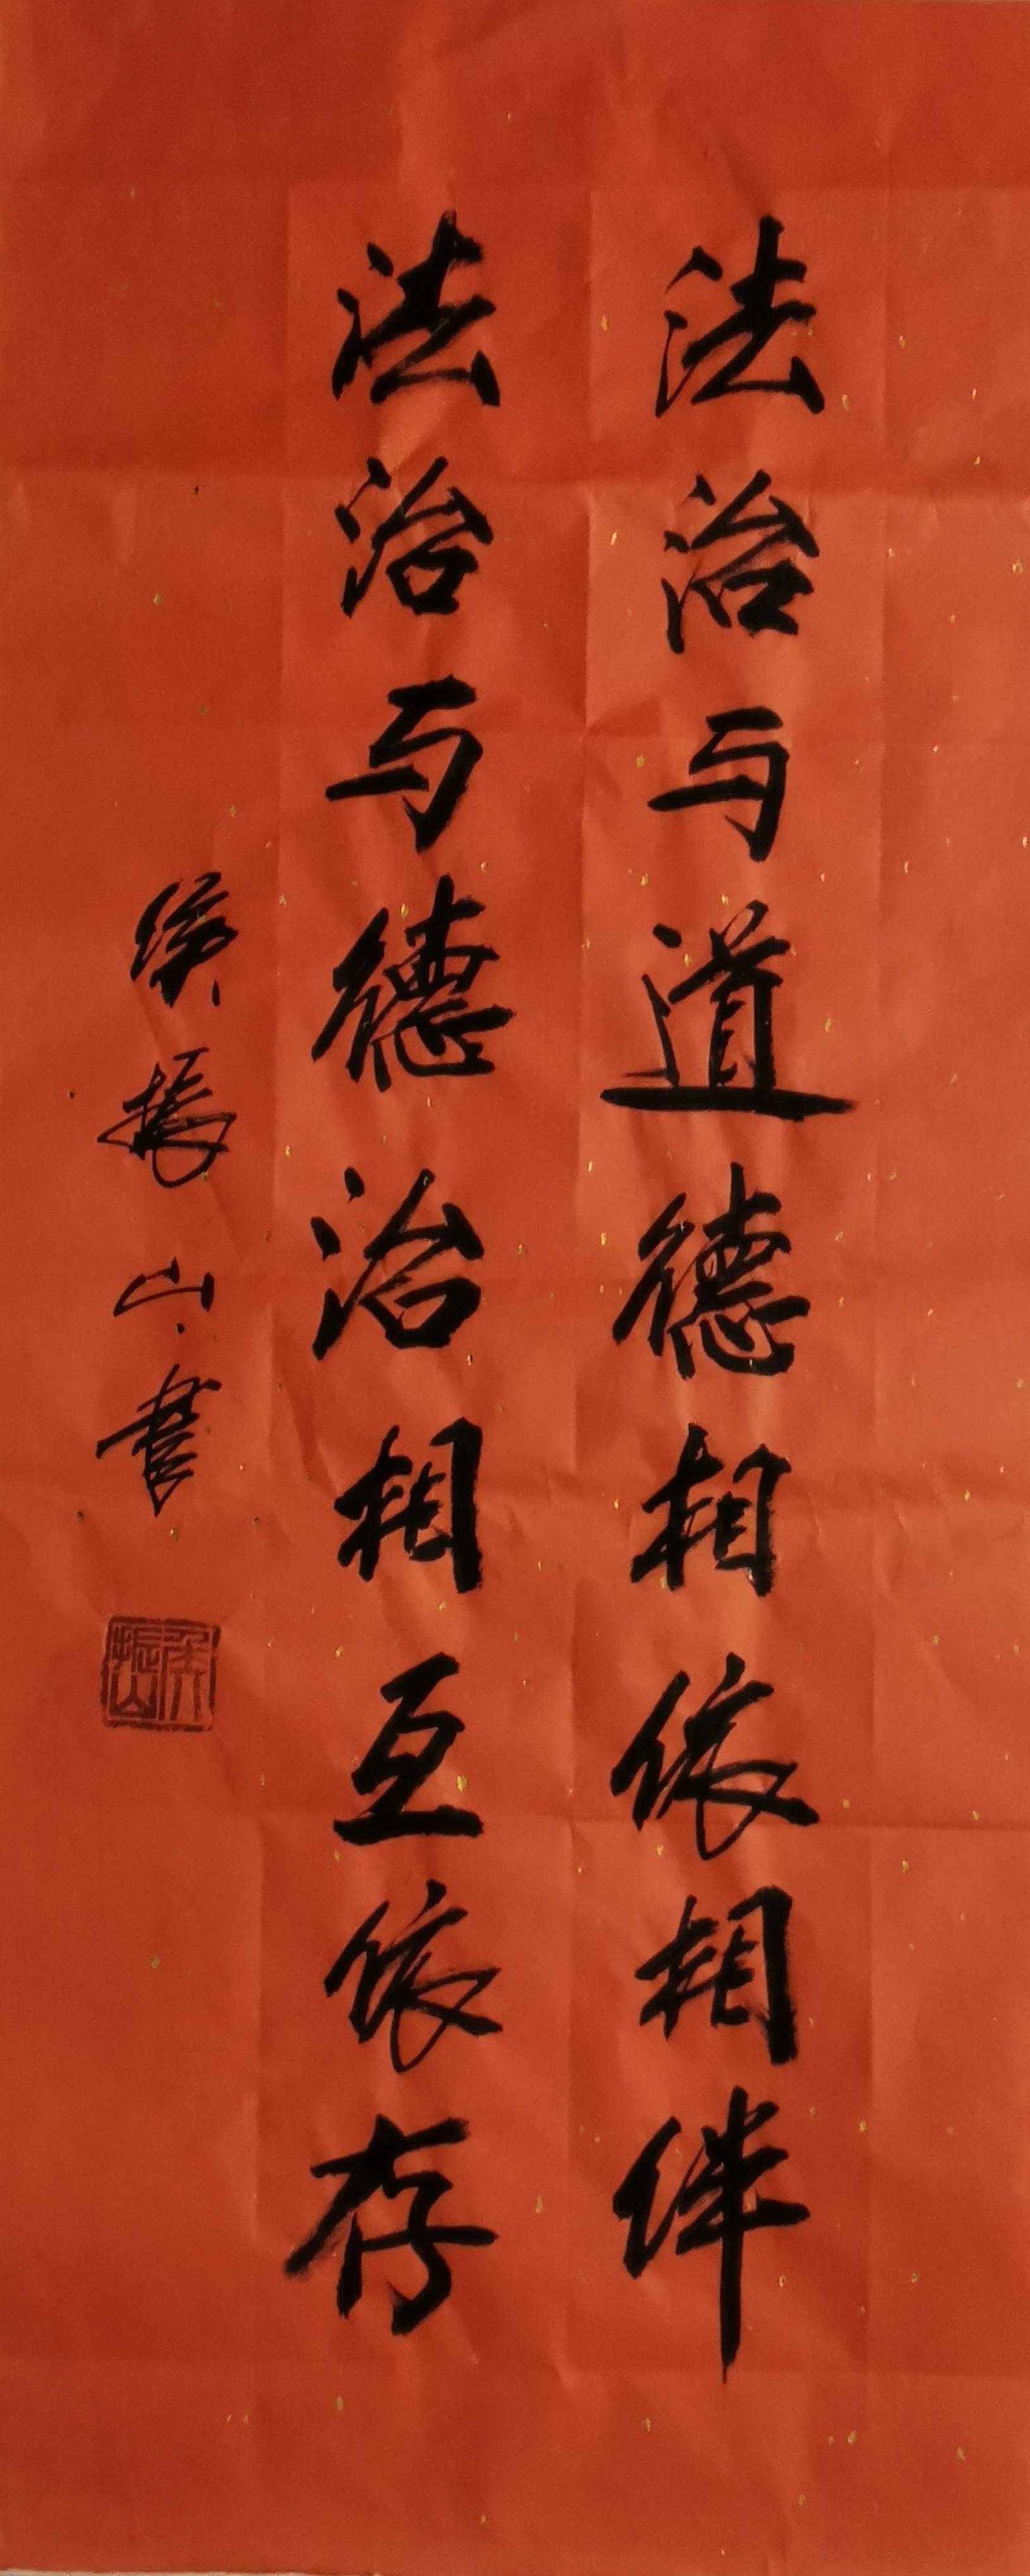 法治与道德相依相伴
法治与德治相互依存
侯振山書
侯振山